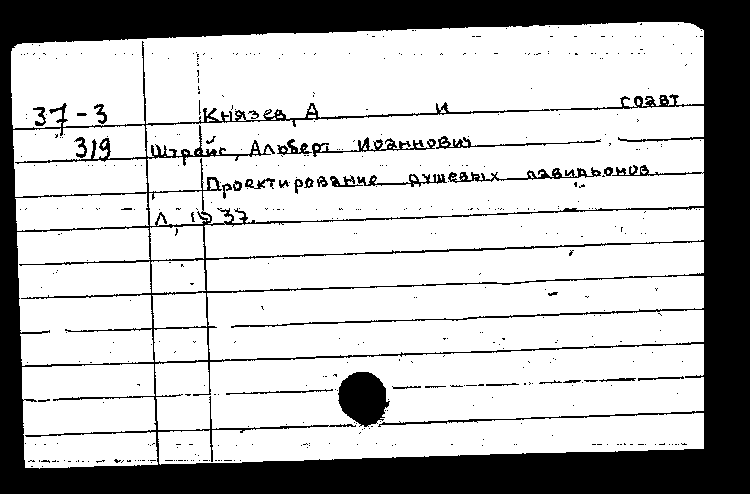 37-3 Князев, А и соавт
319 Штрайс, Альберт Иоаннович
Проектирование душевых павильонов.
Л., 1937.